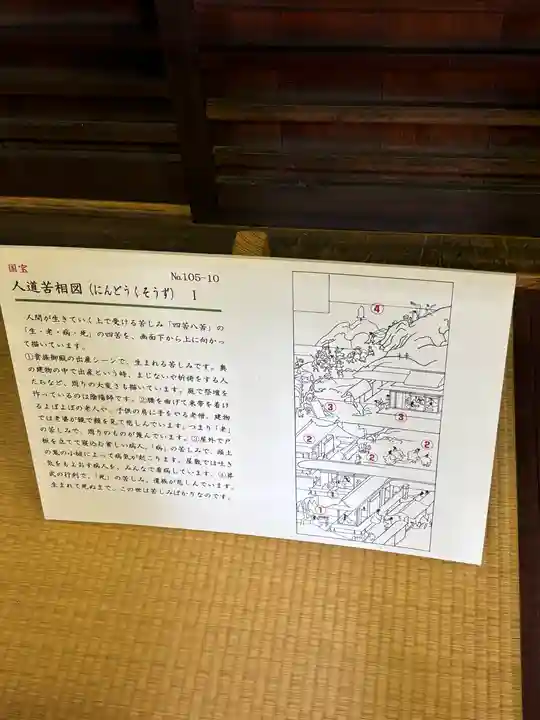 国宝
No.105-10
人道苦相図(にんどうくそうず) I
人間が生きていく上で受ける苦しみ「四苦八苦」の
「生・老・病・死」の四苦を、画面下から上に向かっ
て描いています。
①貴族御殿の出産シーンで、生まれる苦しみです。奥
の建物の中で出産という時、まじないや祈祷をする人
たちなど、周りの大変さも描いています。庭で祭壇を
作っているのは陰陽師です。②腰を曲げて来客を看け
るよぼよぼの老人や、子供の肩に手をやる老僧、建物
では老婆が鏡で顔を見て悲しんでいます。つまり「老」
の苦しみで、周りのものが覗んでいます。③屋外で戸
板を立てて寝込む貧しい病人。「病」の苦しみで、頭上
の鬼の小槌によって病気が起こります。屋敷では吐き
気をもよおす病人を、みんなで看病しています。④葬
式の行列で、「死」の苦しみ。遺族が悲しんでいます。
生まれて死ぬまで、この世は苦しみばかりなのです。
④
③
③
②
②
②
①
①